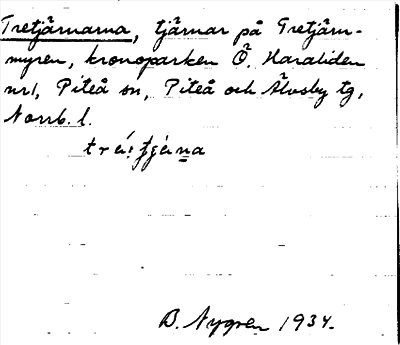 Tretjärnarna, tjärnar på Tretjärn-
myren, kronoparken Ö. Haraliden
nr1, Piteå sn, Piteå och Älvsby tg,
Norrb. l.
B. Nygren 1934.